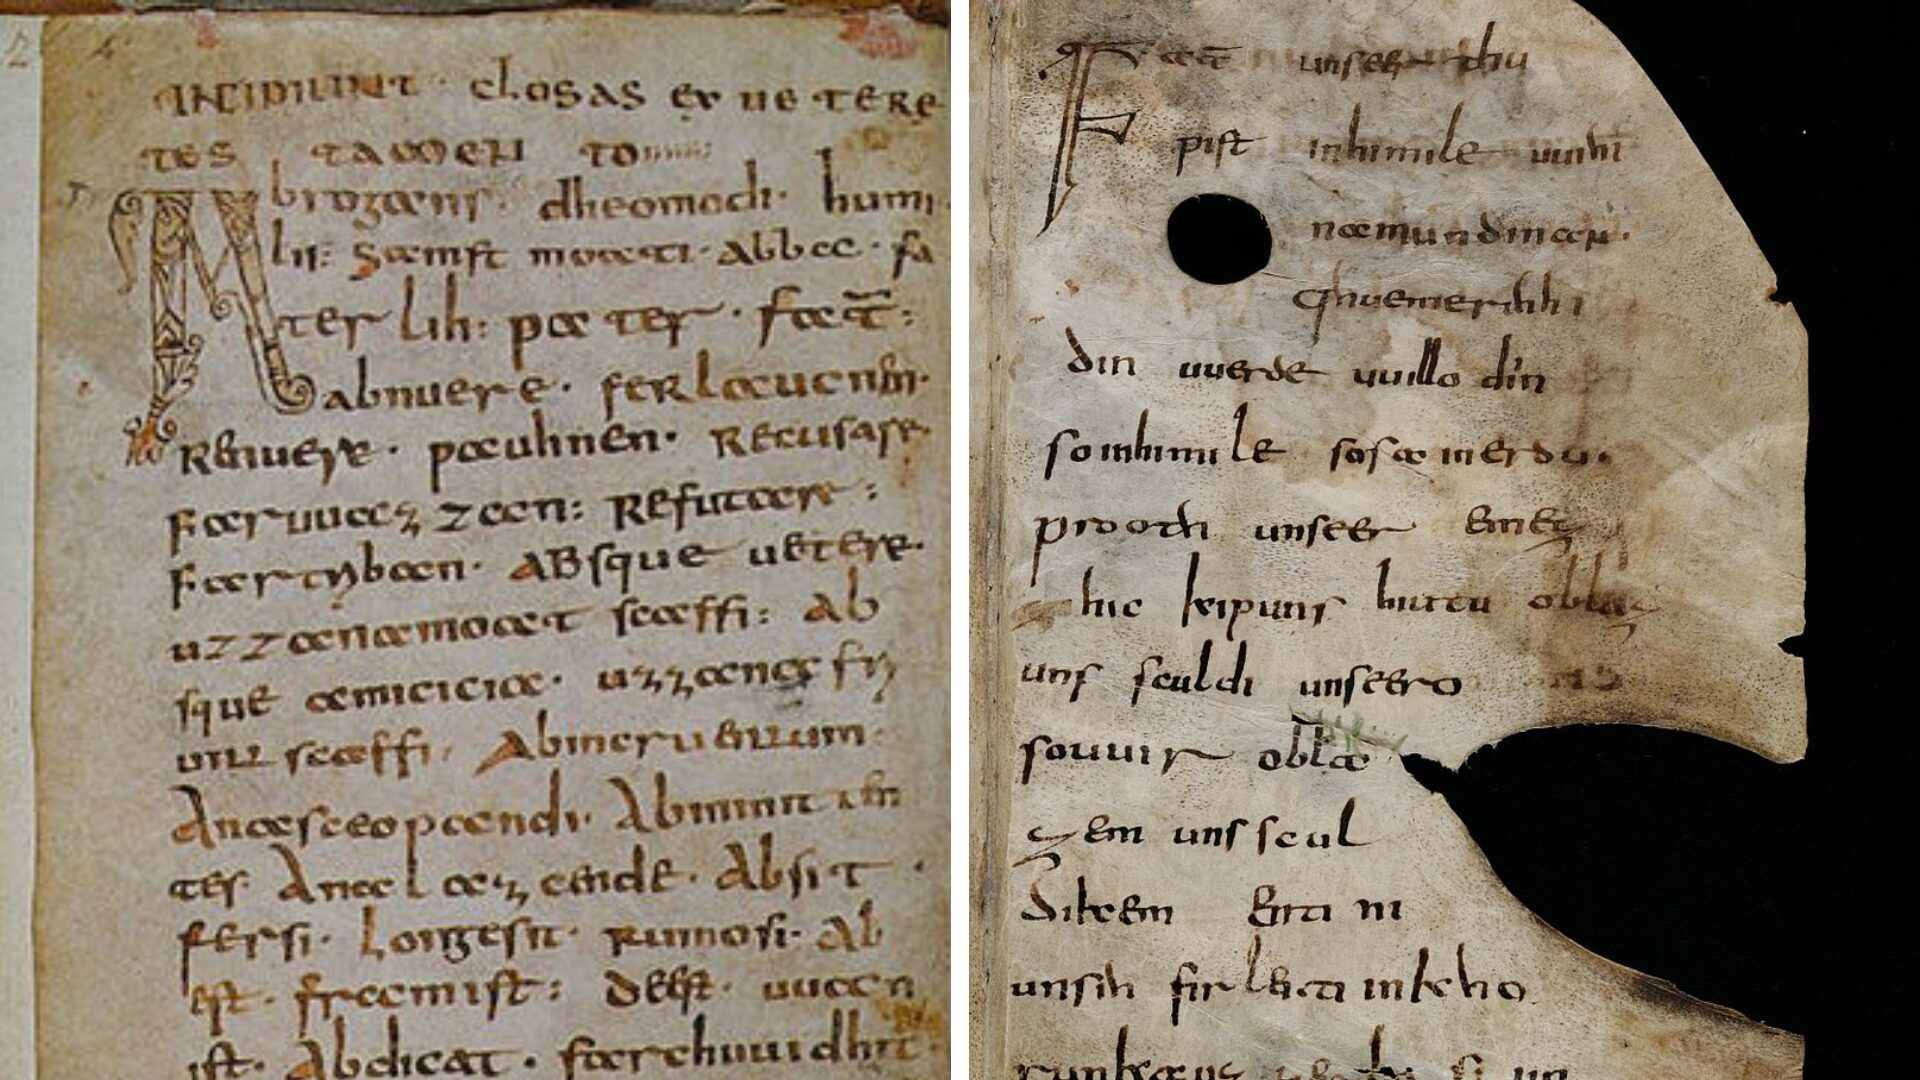 INCIPIUNT · CLOSAS EX UETERE
TES TAMEN TO
Abrogans · dheomodi · humi
lis: samft moati · abbee · fa
ter lih: pater · fat̄:
abnuere · ferlaucnen ·
Renuere · pauhnen · Recusare ·
Faruuazzan: Refutare:
Fartriban · ABsque uetere ·
uzzana moat scaffi: AB
sque amicicia · uzzana fri
unt scaffi · Abincruentum ·
Anaesceopandi · Abminten
tes Anaclazcende · Absit ·
fersi · Longesit · rumosi · Ab
est · framist: deest · uuan
ist · Abdicat · farchuuidhit ·
Fat̄ unseer thu
pist inhimile uuihi
namun dinan ·
qhueme rihhi
din uuerde uuillo diin
so inhimile sosa in erdu ·
prooth unseer emez
zhic kip uns hiutu oblaz
uns sculdi unseero
so uuir obla
zem uns scul
dikem enti ni
unsih firleiti in kho
runka uzzer losi un